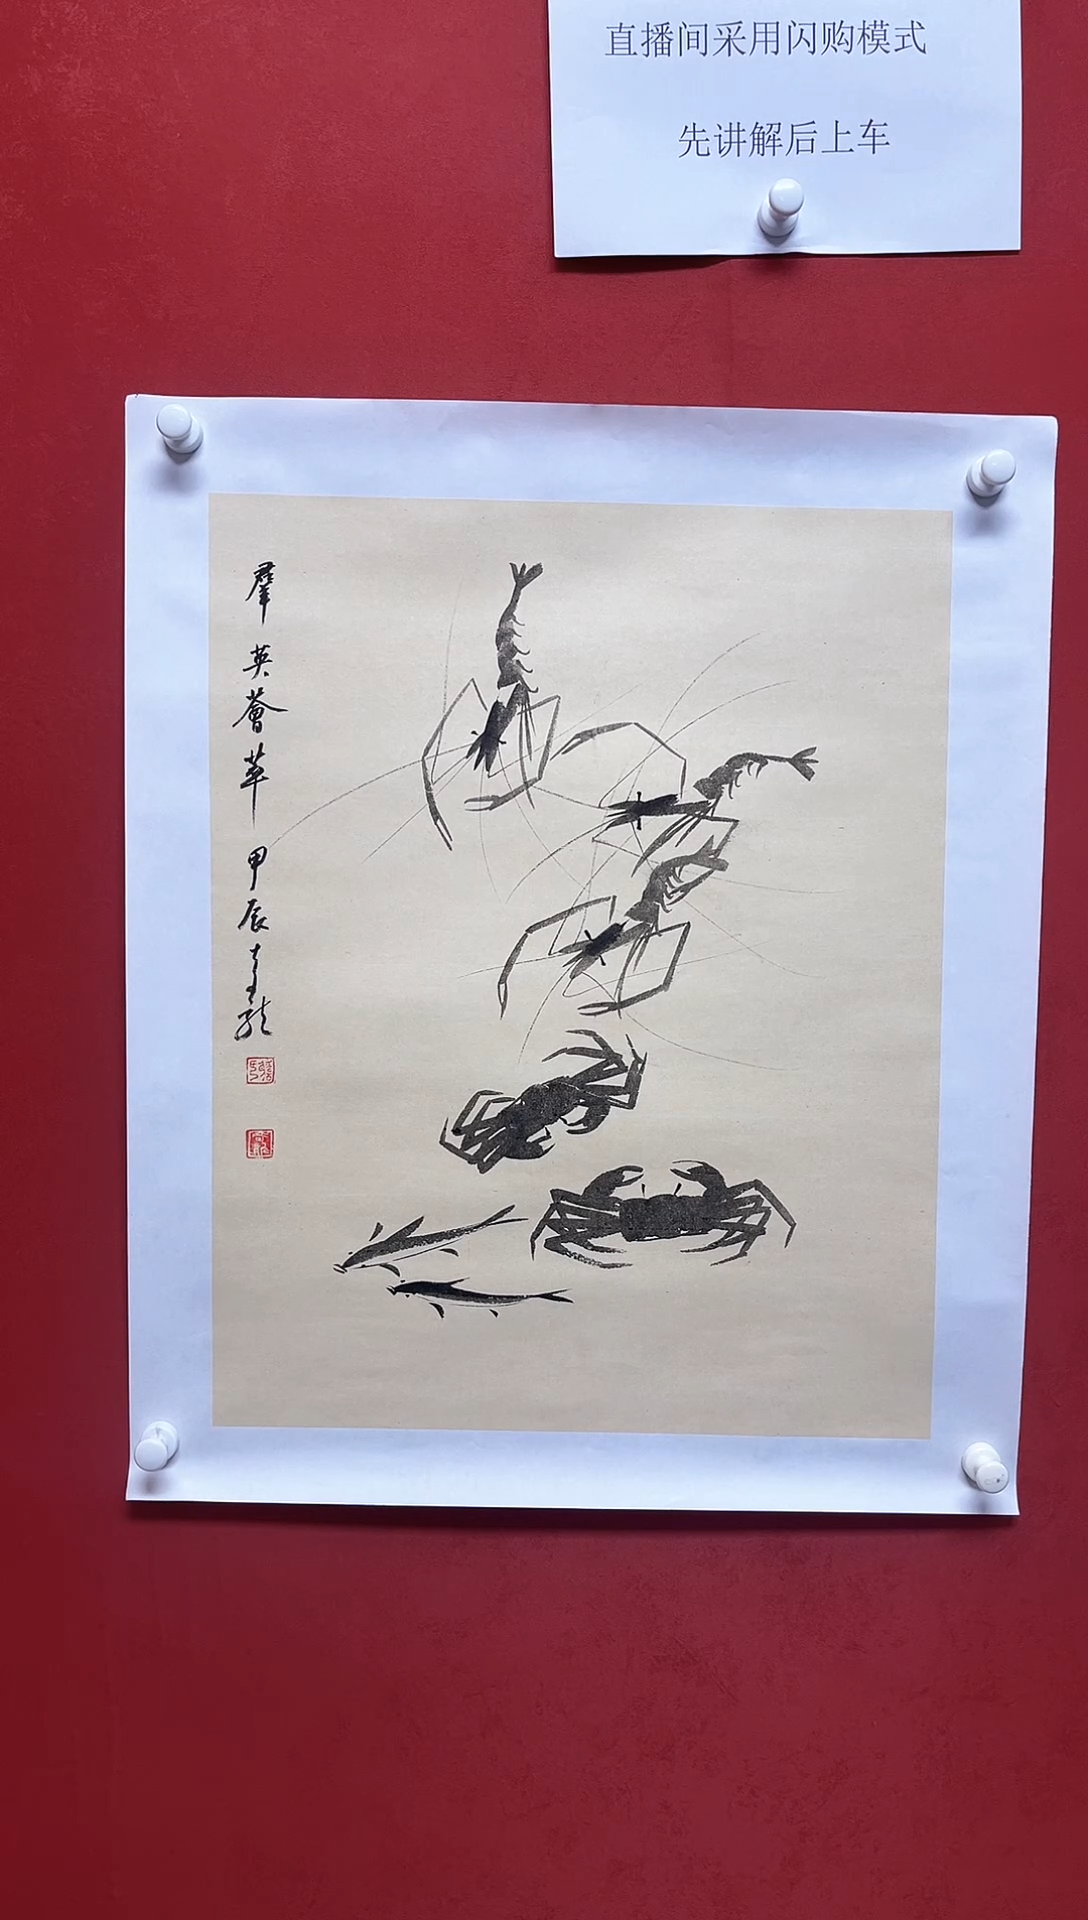 直播间采用闪购模式
先讲解后上车
羣英薈萃 甲辰